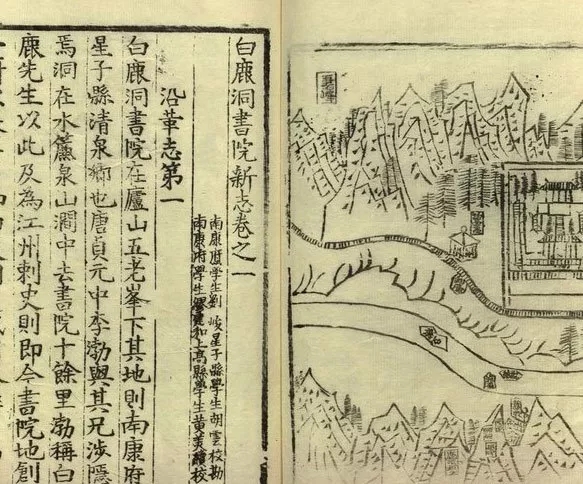 白鹿洞書院新志卷之一
南康府學生劉峻星子縣學生胡雲校勘
南康府學生和上高縣學生黃校
沿革志第一
白鹿洞書院在廬山五老峯下其地則南康府
星子縣清泉鄉也唐貞元中李渤與其兄涉隱
焉洞在水簾泉山澗中去書院十餘里渤稱白
鹿先生以此及為江州刺史則即今書院地創